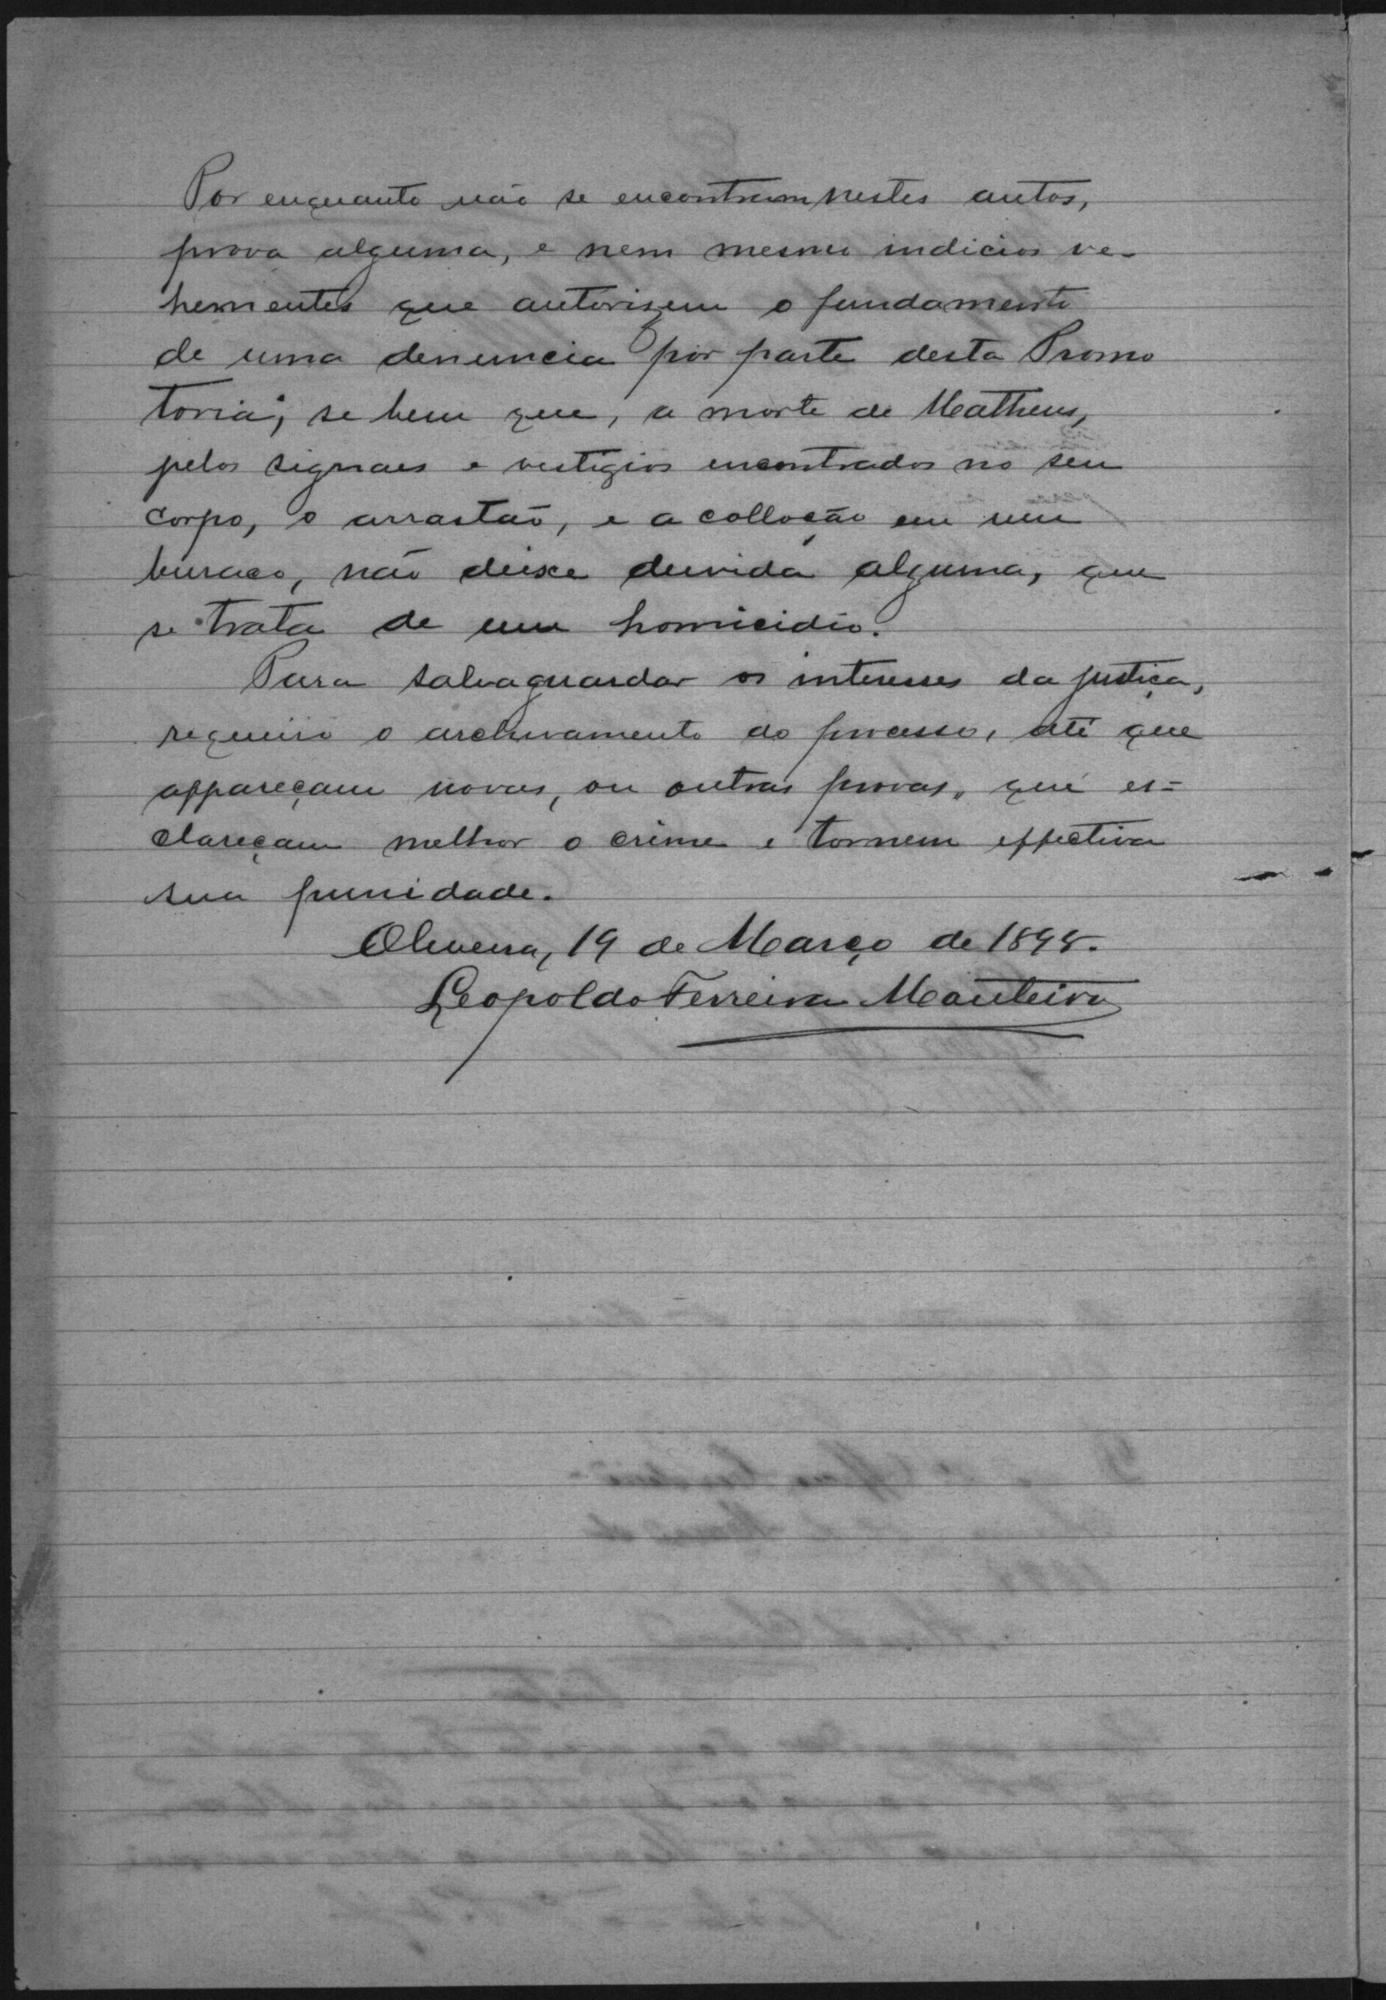 Por enquanto não se encontram nestes autos,
prova alguma, e nem mesmo indicios ve-
hementes que autorisem o fundamento
de uma denuncia por parte desta Promo
toria; se bem que, a morte de Matheus,
pelos signaes e vestigios encontrados no seu
corpo, o arrastão, e a collocação em um
buraco, não deixe duvida alguma, que
se trata de um homicidio.
Para salvaguardar os interesses da justiça,
requeiro o archivamento do processo, até que
appareçam novas, ou outras provas, que es=
clareçam melhor o crime e tornem effectiva
sua punidade.
Oliveira, 19 de Março de 1898.
Leopoldo Ferreira Monteiro